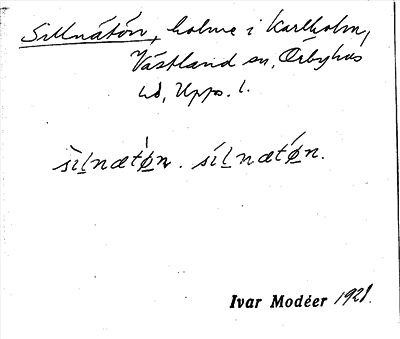 Sillnätön, holme i Karlholm,
Västland sn, Örbyhus
hd, Upps. l.
sìḷnætø̀n. síḷnætǿn.
Ivar Modéer 1928.